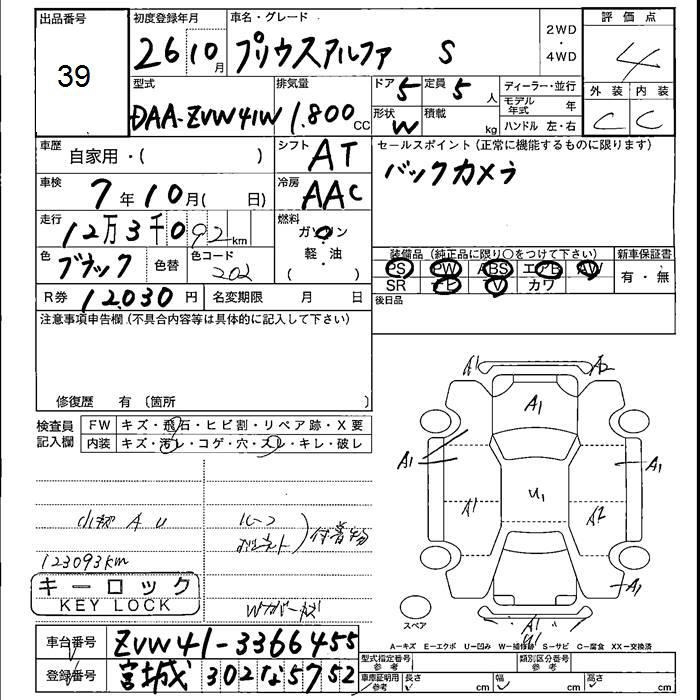 出品番号
39
初度登録年月
26 10月
車名・グレード
プリウスアルファ S
2WD
・
4WD
評価点
4
外装 内装
C C
型式
DAA-ZVW41W
排気量
1.800 CC
ドア 5
定員 5 人
形状 W
積載 kg
ディーラー・並行
モデル年式 年
ハンドル 左・右
車歴
自家用・( )
シフト
AT
セールスポイント(正常に機能するものに限ります)
バックカメラ
車検
7年10月( 日)
冷房
AAC
走行
12万3千092km
燃料
ガソリン
・
軽・油
( )
色
ブラック
色替
色コード
202
装備品(純正品に限り○をつけて下さい)
PS PW ABS エアB AW
SR ナビ TV カワ
新車保証書
有・無
R券 12030円
名変期限 月 日
後日品
注意事項申告欄(不具合内容等は具体的に記入して下さい)
修復歴 有〔箇所 〕
検査員
記入欄
FW キズ・飛石・ヒビ割・リペア跡・X要
内装 キズ・汚レ・コゲ・穴・スレ・キレ・破レ
小キズ A U
ルーフ
ボンネット
付着物
123093km
キーロック
KEY LOCK
A1 A2
A1
A1 A1
U1
A1 A2
A1
A1
U1
スペア
A=キズ E=エクボ U=凹み W=補修跡 S=サビ C=腐食 XX=交換済
車台番号 ZVW41-3366455
登録番号 宮城 302 な 5752
型式指定番号
参考
類別区分番号
参考
車庫証明用
参考
長さ cm
幅 cm
高さ cm